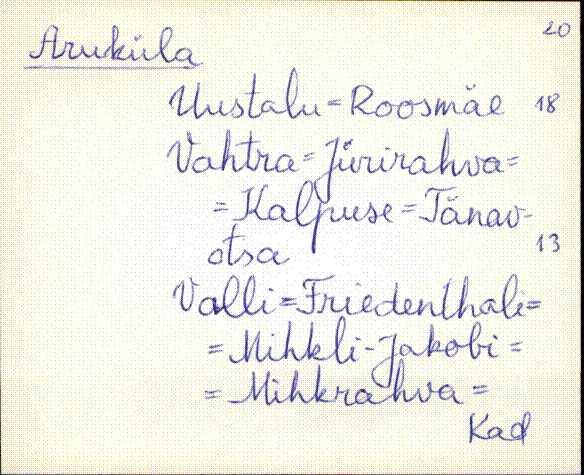 20
Aruküla
Uustalu = Roosmäe 18
Vahtra = Jürirahva =
= Kalpuse = Tänav-
otsa 13
Valli = Friedenthali =
= Mihkli-Jakobi =
= Mihkrahva =
Kad